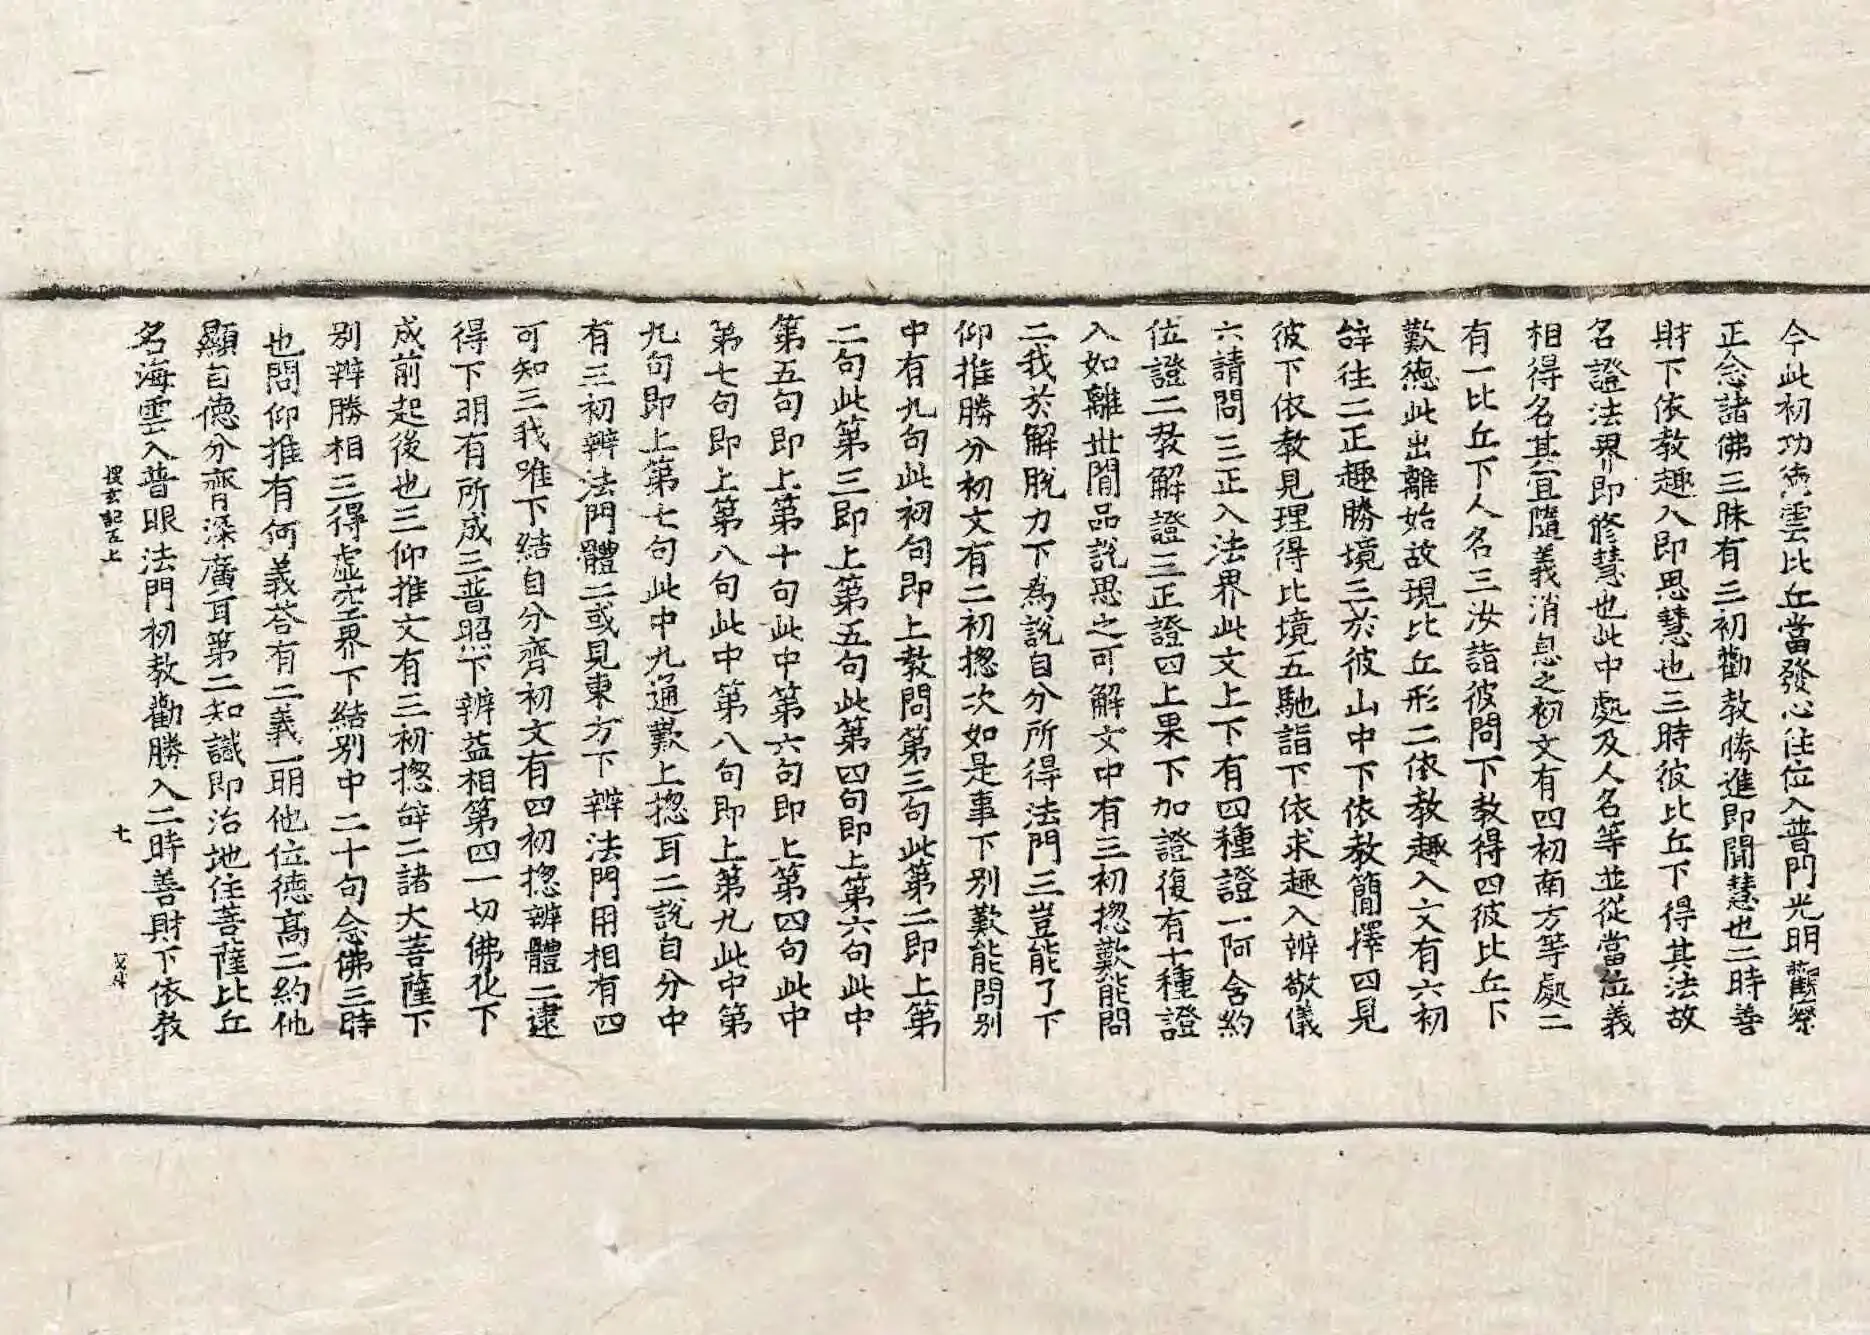 今此初功德雲比丘當發心住位入普門光明觀察
正念諸佛三昧有三初勸教勝進即聞慧也二時善
財下依教趣入即思慧也三時彼比丘下得其法故
名證法界即修慧也此中處及人名等並從當位義
相得名其宜隨義消息之初文有四初南方等處二
有一比丘下人名三汝詣彼問下教得四彼比丘下
歎德此出離始故現比丘形二依教趣入文有六初
辝往二正趣勝境三於彼山中下依教簡擇四見
彼下依教見理得比境五馳詣下依求趣入辨敬儀
六請問三正入法界此文上下有四種證一阿含約
位證二教解證三正證四上果下加證復有十種證
入如離世閒品說思之可解文中有三初揔歎能問
二我於解脫力下為說自分所得法門三豈能了下
仰推勝分初文有二初揔次如是事下別歎能問別
中有九句此初句即上教問第三句此第二即上第
二句此第三即上第五句此第四句即上第六句此中
第五句即上第十句此中第六句即上第四句此中
第七句即上第八句此中第八句即上第九此中第
九句即上第七句此中九通歎上揔耳二說自分中
有三初辨法門體二或見東方下辨法門用相有四
可知三我唯下結自分齊初文有四初揔辨體二逮
得下明有所成三普照下辨益相第四一切佛化下
成前起後也三仰推文有三初揔辝二諸大菩薩下
別辨勝相三得虛空界下結別中二十句念佛三昧
也問仰推有何義荅有二義一明他位德高二約他
顯自德分齊深廣耳第二知識即治地住菩薩比丘
名海雲入普眼法門初教勸勝入二時善財下依教
搜玄記五上
七